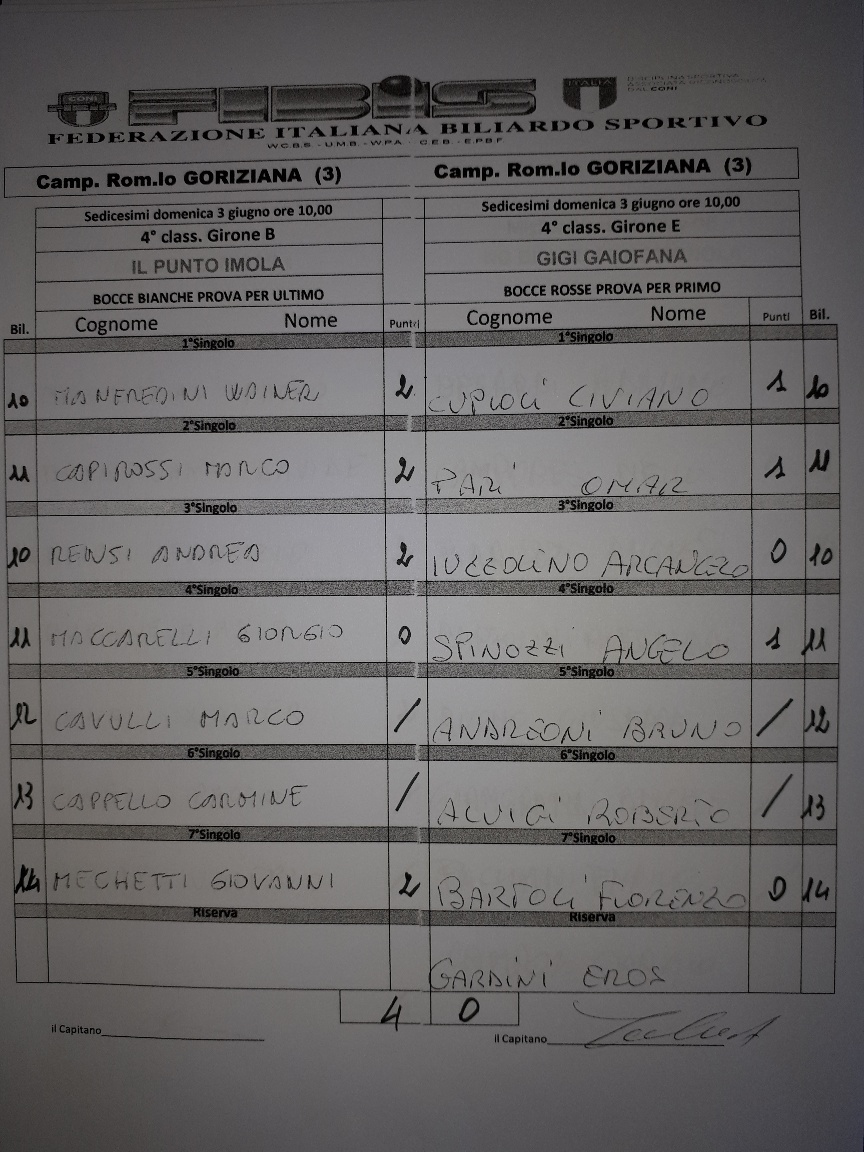 CONI FIBiS ITALIA DISCIPLINA SPORTIVA ASSOCIATA RICONOSCIUTA DAL CONI
FEDERAZIONE ITALIANA BILIARDO SPORTIVO
W.C.B.S. - U.M.B. - W.P.A. - C.E.B. - E.P.B.F
Camp. Rom.lo GORIZIANA (3) Camp. Rom.lo GORIZIANA (3)
Sedicesimi domenica 3 giugno ore 10,00 Sedicesimi domenica 3 giugno ore 10,00
4° class. Girone B 4° class. Girone E
IL PUNTO IMOLA GIGI GAIOFANA
BOCCE BIANCHE PROVA PER ULTIMO BOCCE ROSSE PROVA PER PRIMO
Bil. Cognome Nome Punti Cognome Nome Punti Bil.
1°Singolo 1°Singolo
10 MANFREDINI WAINER 2 CUPIOLI CIVIANO 1 10
2°Singolo 2°Singolo
11 CAPIROSSI MARCO 2 PARI OMAR 1 11
3°Singolo 3°Singolo
10 RENSI ANDREA 2 IUZZOLINO ARCANGELO 0 10
4°Singolo 4°Singolo
11 MACCARELLI GIORGIO 0 SPINOZZI ANGELO 1 11
5°Singolo 5°Singolo
12 CAVULLI MARCO / ANDREONI BRUNO / 12
6°Singolo 6°Singolo
13 CAPPELLO CARMINE / ALUIGI ROBERTO / 13
7°Singolo 7°Singolo
14 MECHETTI GIOVANNI 2 BARTOLI FIORENZO 0 14
Riserva Riserva
GARDINI EROS
4 0
il Capitano il Capitano